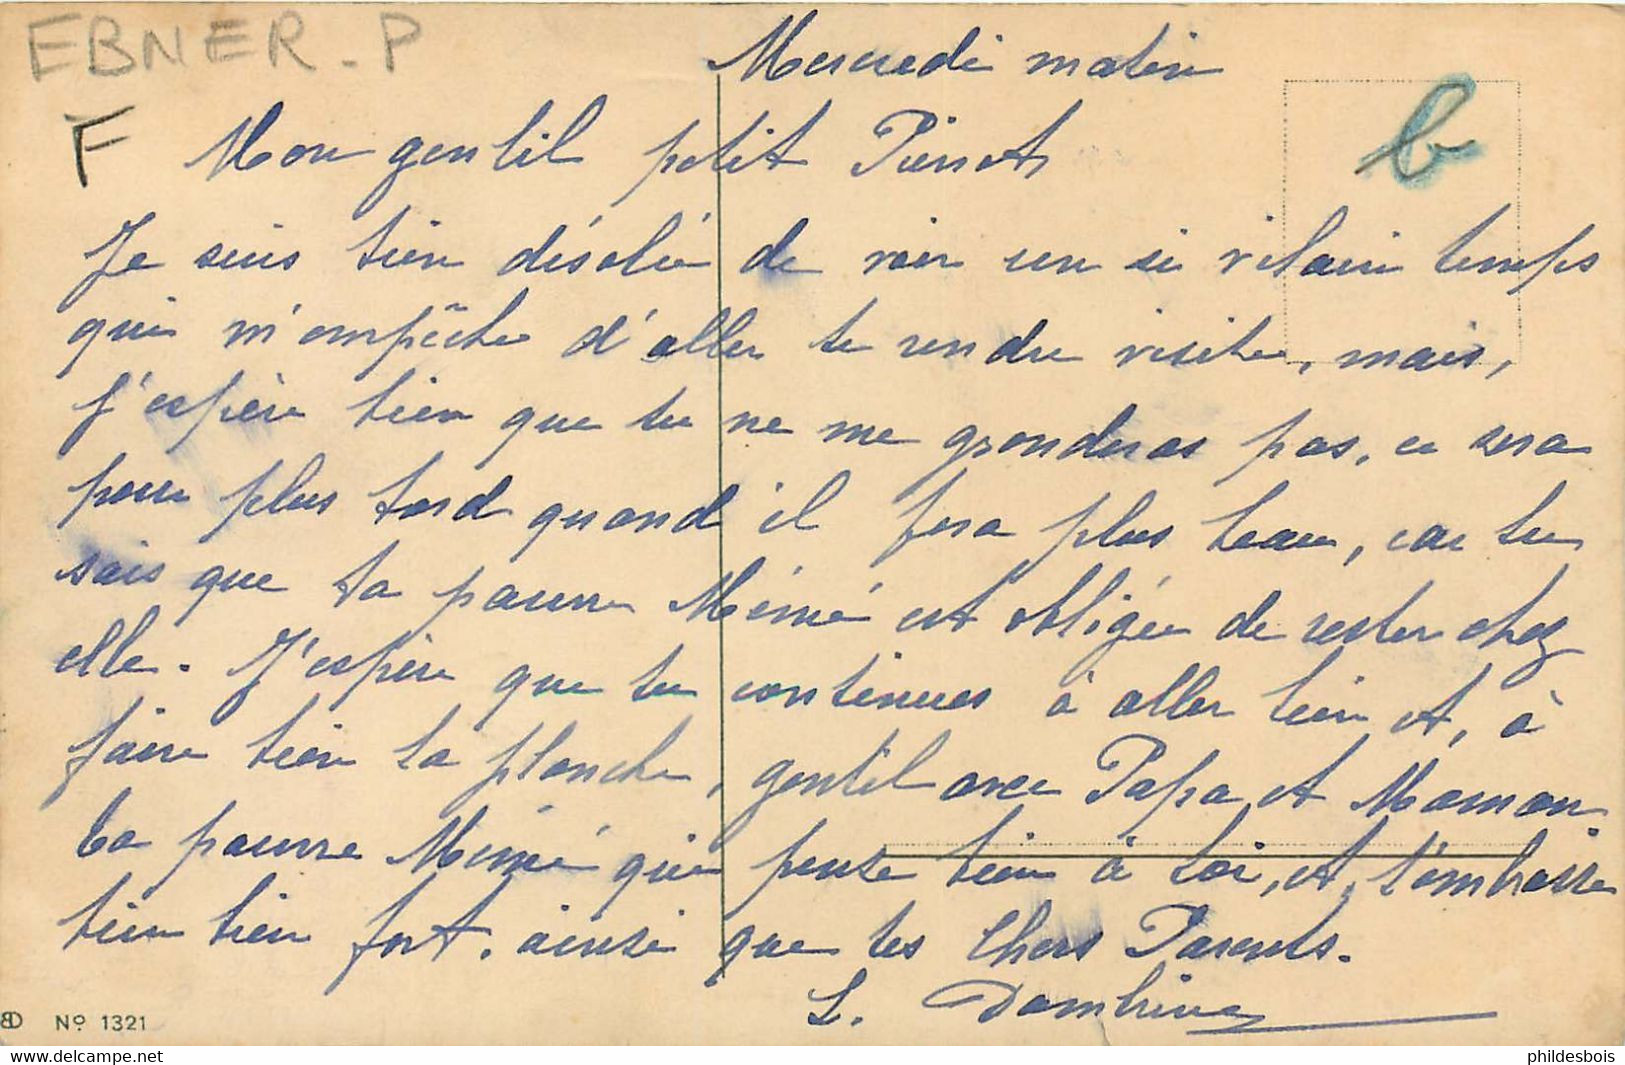 EBNER. P
Mercredi matin
b
F
Mon gentil petit Pierrot,
Je suis bien désolée de voir un si vilain temps
qui m'empêche d'aller te rendre visite, mais,
j'espère bien que tu ne me gronderas pas, ce sera
pour plus tard quand il fera plus beau, car tu
sais que ta pauvre Mémé est obligée de rester chez
elle. J'espère que tu continues à aller bien et, à
faire bien la planche, gentil avec Papa, et Maman
ta pauvre Mémé qui pense bien à toi, et, t'embrasse
bien bien fort. ainsi que tes Chers Parents.
L. Dambrine
BD No 1321
www.delcampe.net
phildesbois